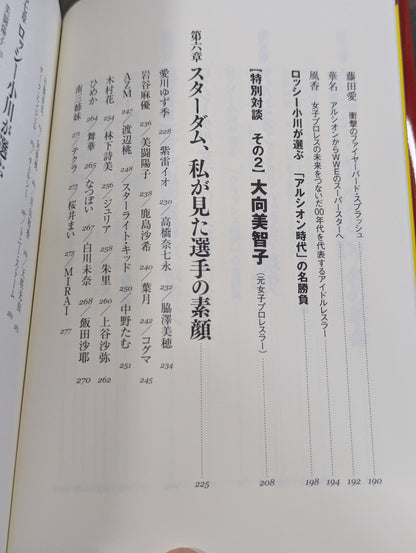 藤田愛 衝撃のファイヤーバード・スプラッシュ 190
華名 アルシオンからWWEのスーパースターへ 192
風香 女子プロレスの未来をつないだ00年代を代表するアイドルレスラー 194
ロッシー小川が選ぶ 「アルシオン時代」の名勝負 198
【特別対談 その2】大向美智子(元女子プロレスラー) 208
第六章 スターダム、私が見た選手の素顔 225
愛川ゆず季 228/紫雷イオ 230/高橋奈七永 232/脇澤美穂 234
岩谷麻優 236/美闘陽子 238/鹿島沙希 240/葉月 242/コグマ 245
AZM 247/渡辺桃 248/スターライト・キッド 250/中野たむ 251
木村花 254/林下詩美 256/ジュリア 258/朱里 260/上谷沙弥 262
ひめか 264/舞華 265/なつぽい 267/白川未奈 268/飯田沙耶 270
南三姉妹 271/テクラ 273/桜井まい 275/MIRAI 277
ロッシー小川が選ぶ